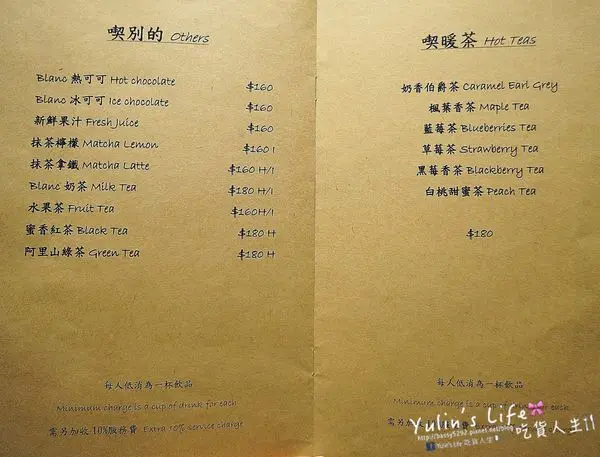 喫別的 Others
Blanc 熱可可 Hot chocolate $160
Blanc 冰可可 Ice chocolate $160
新鮮果汁 Fresh Juice $160
抹茶檸檬 Matcha Lemon $160 I
抹茶拿鐵 Matcha Latte $160 H/I
Blanc 奶茶 Milk Tea $180 H/I
水果茶 Fruit Tea $160H/I
蜜香紅茶 Black Tea $180 H
阿里山綠茶 Green Tea $180 H
每人低消為一杯飲品
Minimum charge is a cup of drink for each
需另加收 10%服務費 Extra 10% service charge
喫暖茶 Hot Teas
奶香伯爵茶 Caramel Earl Grey
楓葉香茶 Maple Tea
藍莓茶 Blueberries Tea
草莓茶 Strawberry Tea
黑莓香茶 Blackberry Tea
白桃甜蜜茶 Peach Tea
$180
每人低消為一杯飲品
Minimum charge is a cup of drink for each
需另加收 10%服務費 Extra
Yulin's Life
吃貨人生!!
Yulin's Life 吃貨人生